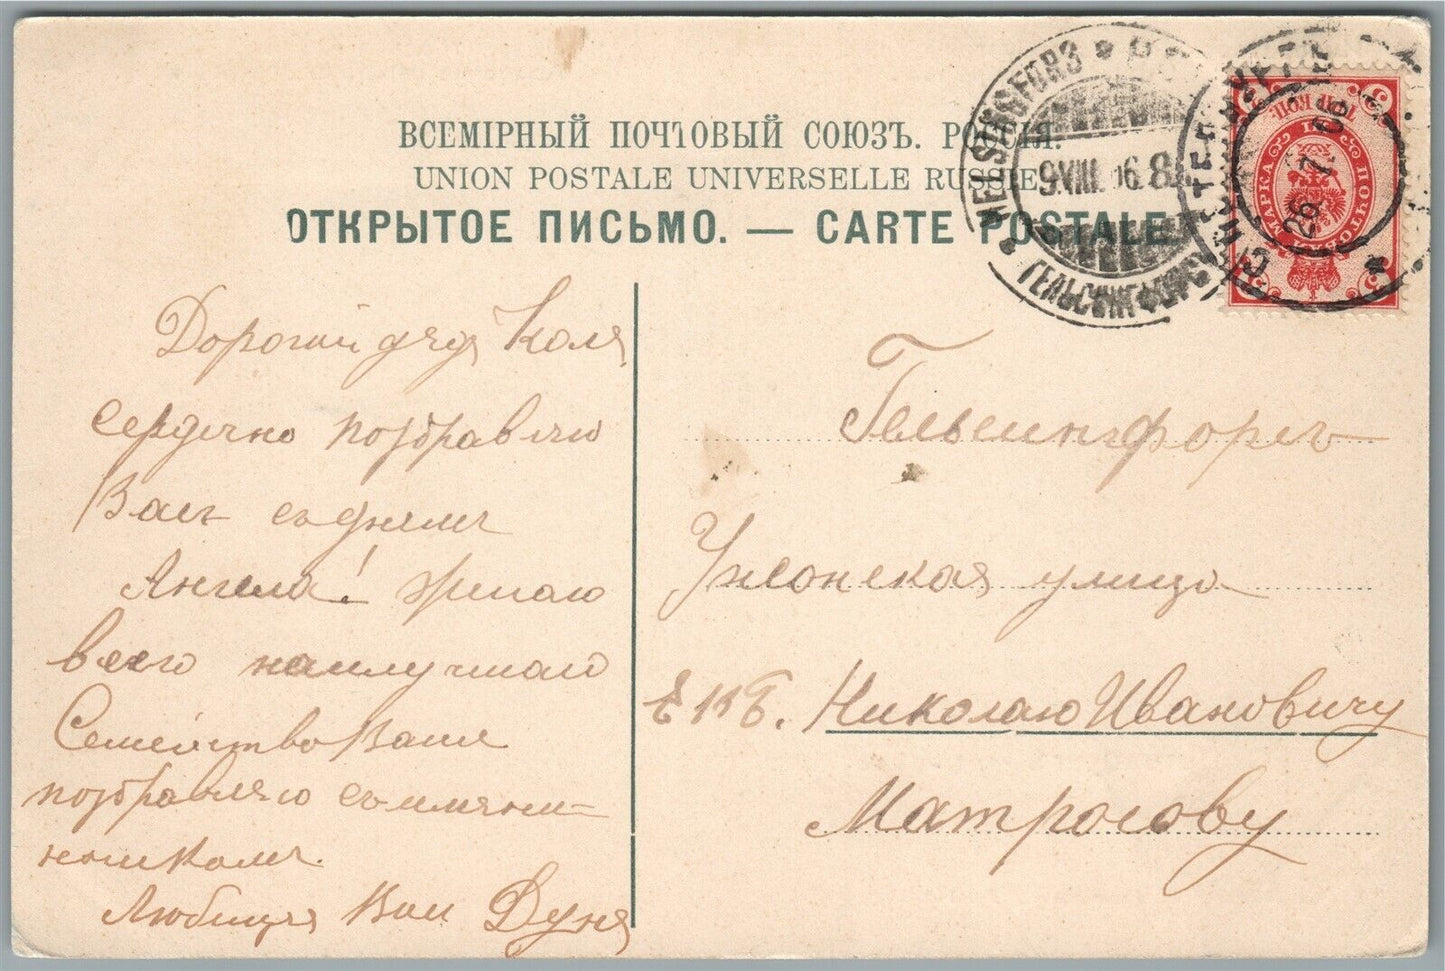 ВСЕМІРНЫЙ ПОЧТОВЫЙ СОЮЗЪ. РОССІЯ.
UNION POSTALE UNIVERSELLE RUSSIE
ОТКРЫТОЕ ПИСЬМО. — CARTE POSTALE
HELSINGFORS
9.VIII.06.8
ГЕЛЬСИНГФОРСЪ
С.ПЕТЕРБУРГЪ
26.7.06
ПОЧТОВАЯ МАРКА
ТРИ КОП.
3 3 3 3
Дорогой дядя Коля
сердечно поздравляю
Васъ съ днемъ
Ангела! желаю
всего наилучшаго
Семейство Ваше
поздравляю съ имянин-
никомъ.
Любящая Вас Дуня
Гельсингфорсъ
Ужонская улица
ЕВБ. Николаю Ивановичу
Матросову